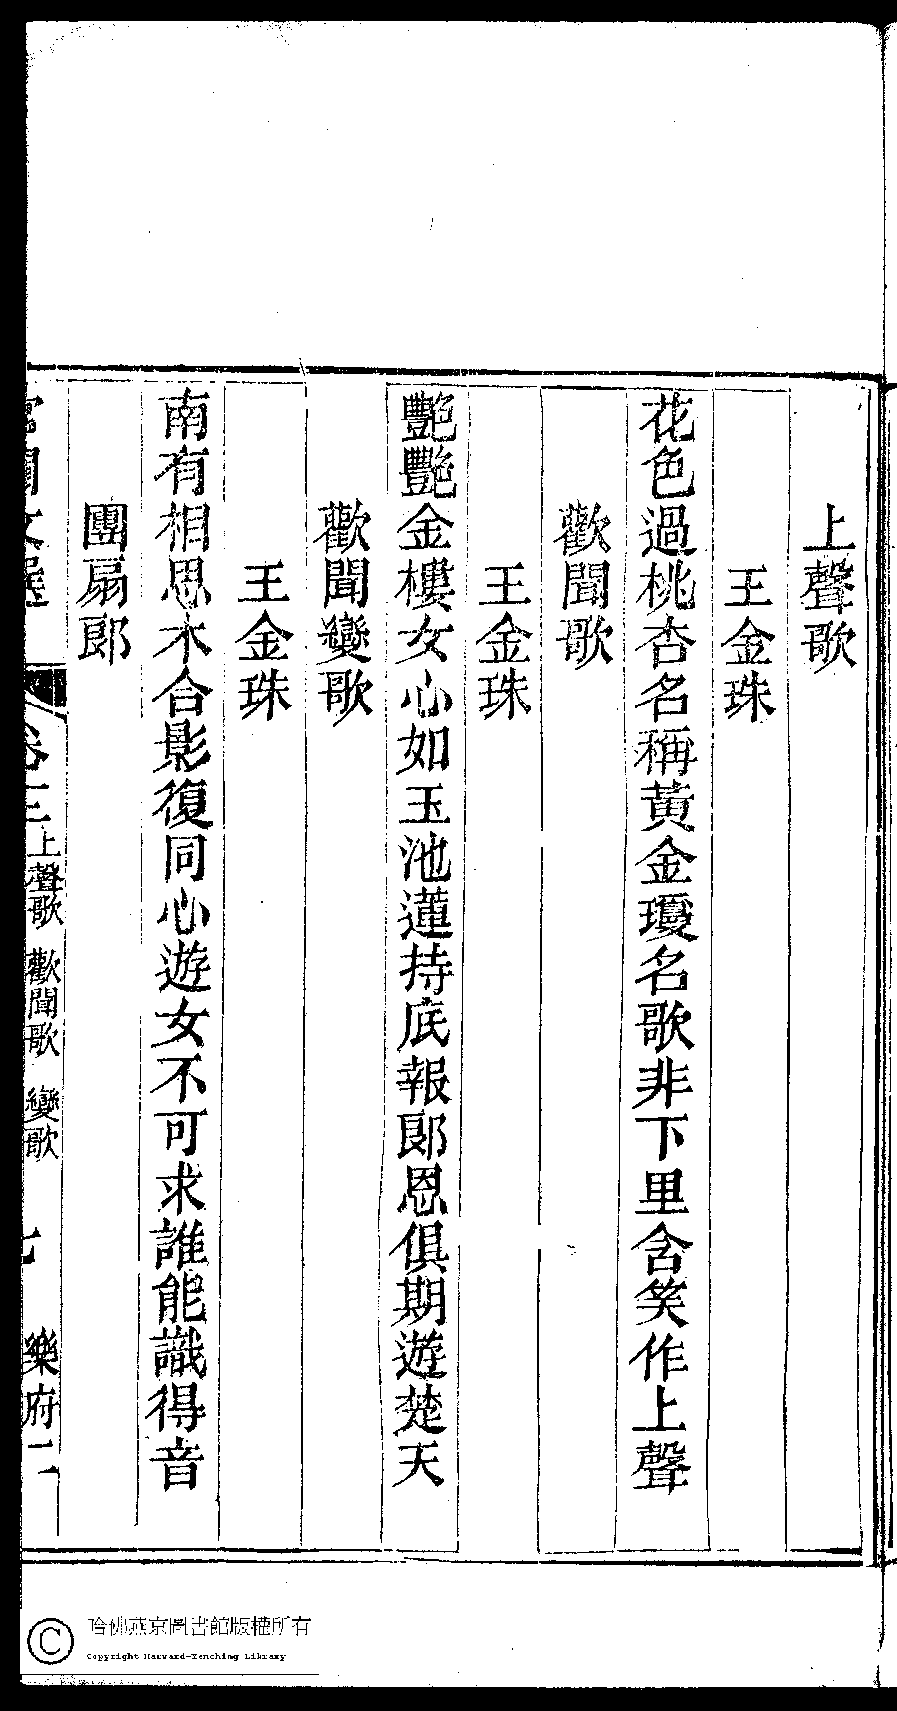 上聲歌
王金珠
花色過桃杏名稱黃金瓊名歌非下里含笑作上聲
歡聞歌
王金珠
艷艷金樓女心如玉池蓮持底報郎恩俱期遊楚天
歡聞變歌
王金珠
南有相思木合影復同心遊女不可求誰能識得音
團扇郎
宮閨文選 卷三 上聲歌 歡聞歌 變歌 七 樂府二
哈佛燕京圖書館版權所有
Copyright Harvard-Yenching Library